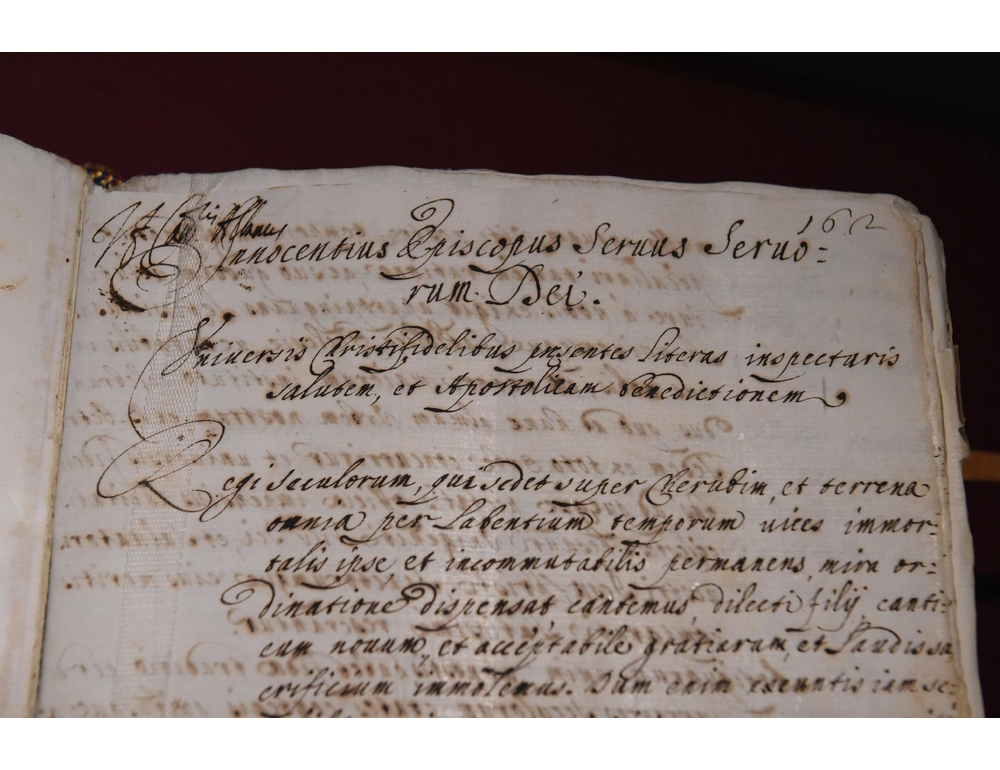 162
Innocentius Episcopus Seruus Seruo=
rum Dei.
Vniversis Christifidelibus pnsentes Literas inspecturis
salutem, et Apostolicam benedictionem
Regi seculorum, qui sedet super Cherubim, et terrena
omnia per Labentium temporum uices immor=
talis ipse, et incommutabilis permanens, mira or=
dinatione dispensat cantemus, dilecti filij canti=
cum nouum, et acceptabile gratiarum, et Laudis sa
crificium immolemus. Dum enim exeuntis iam se=